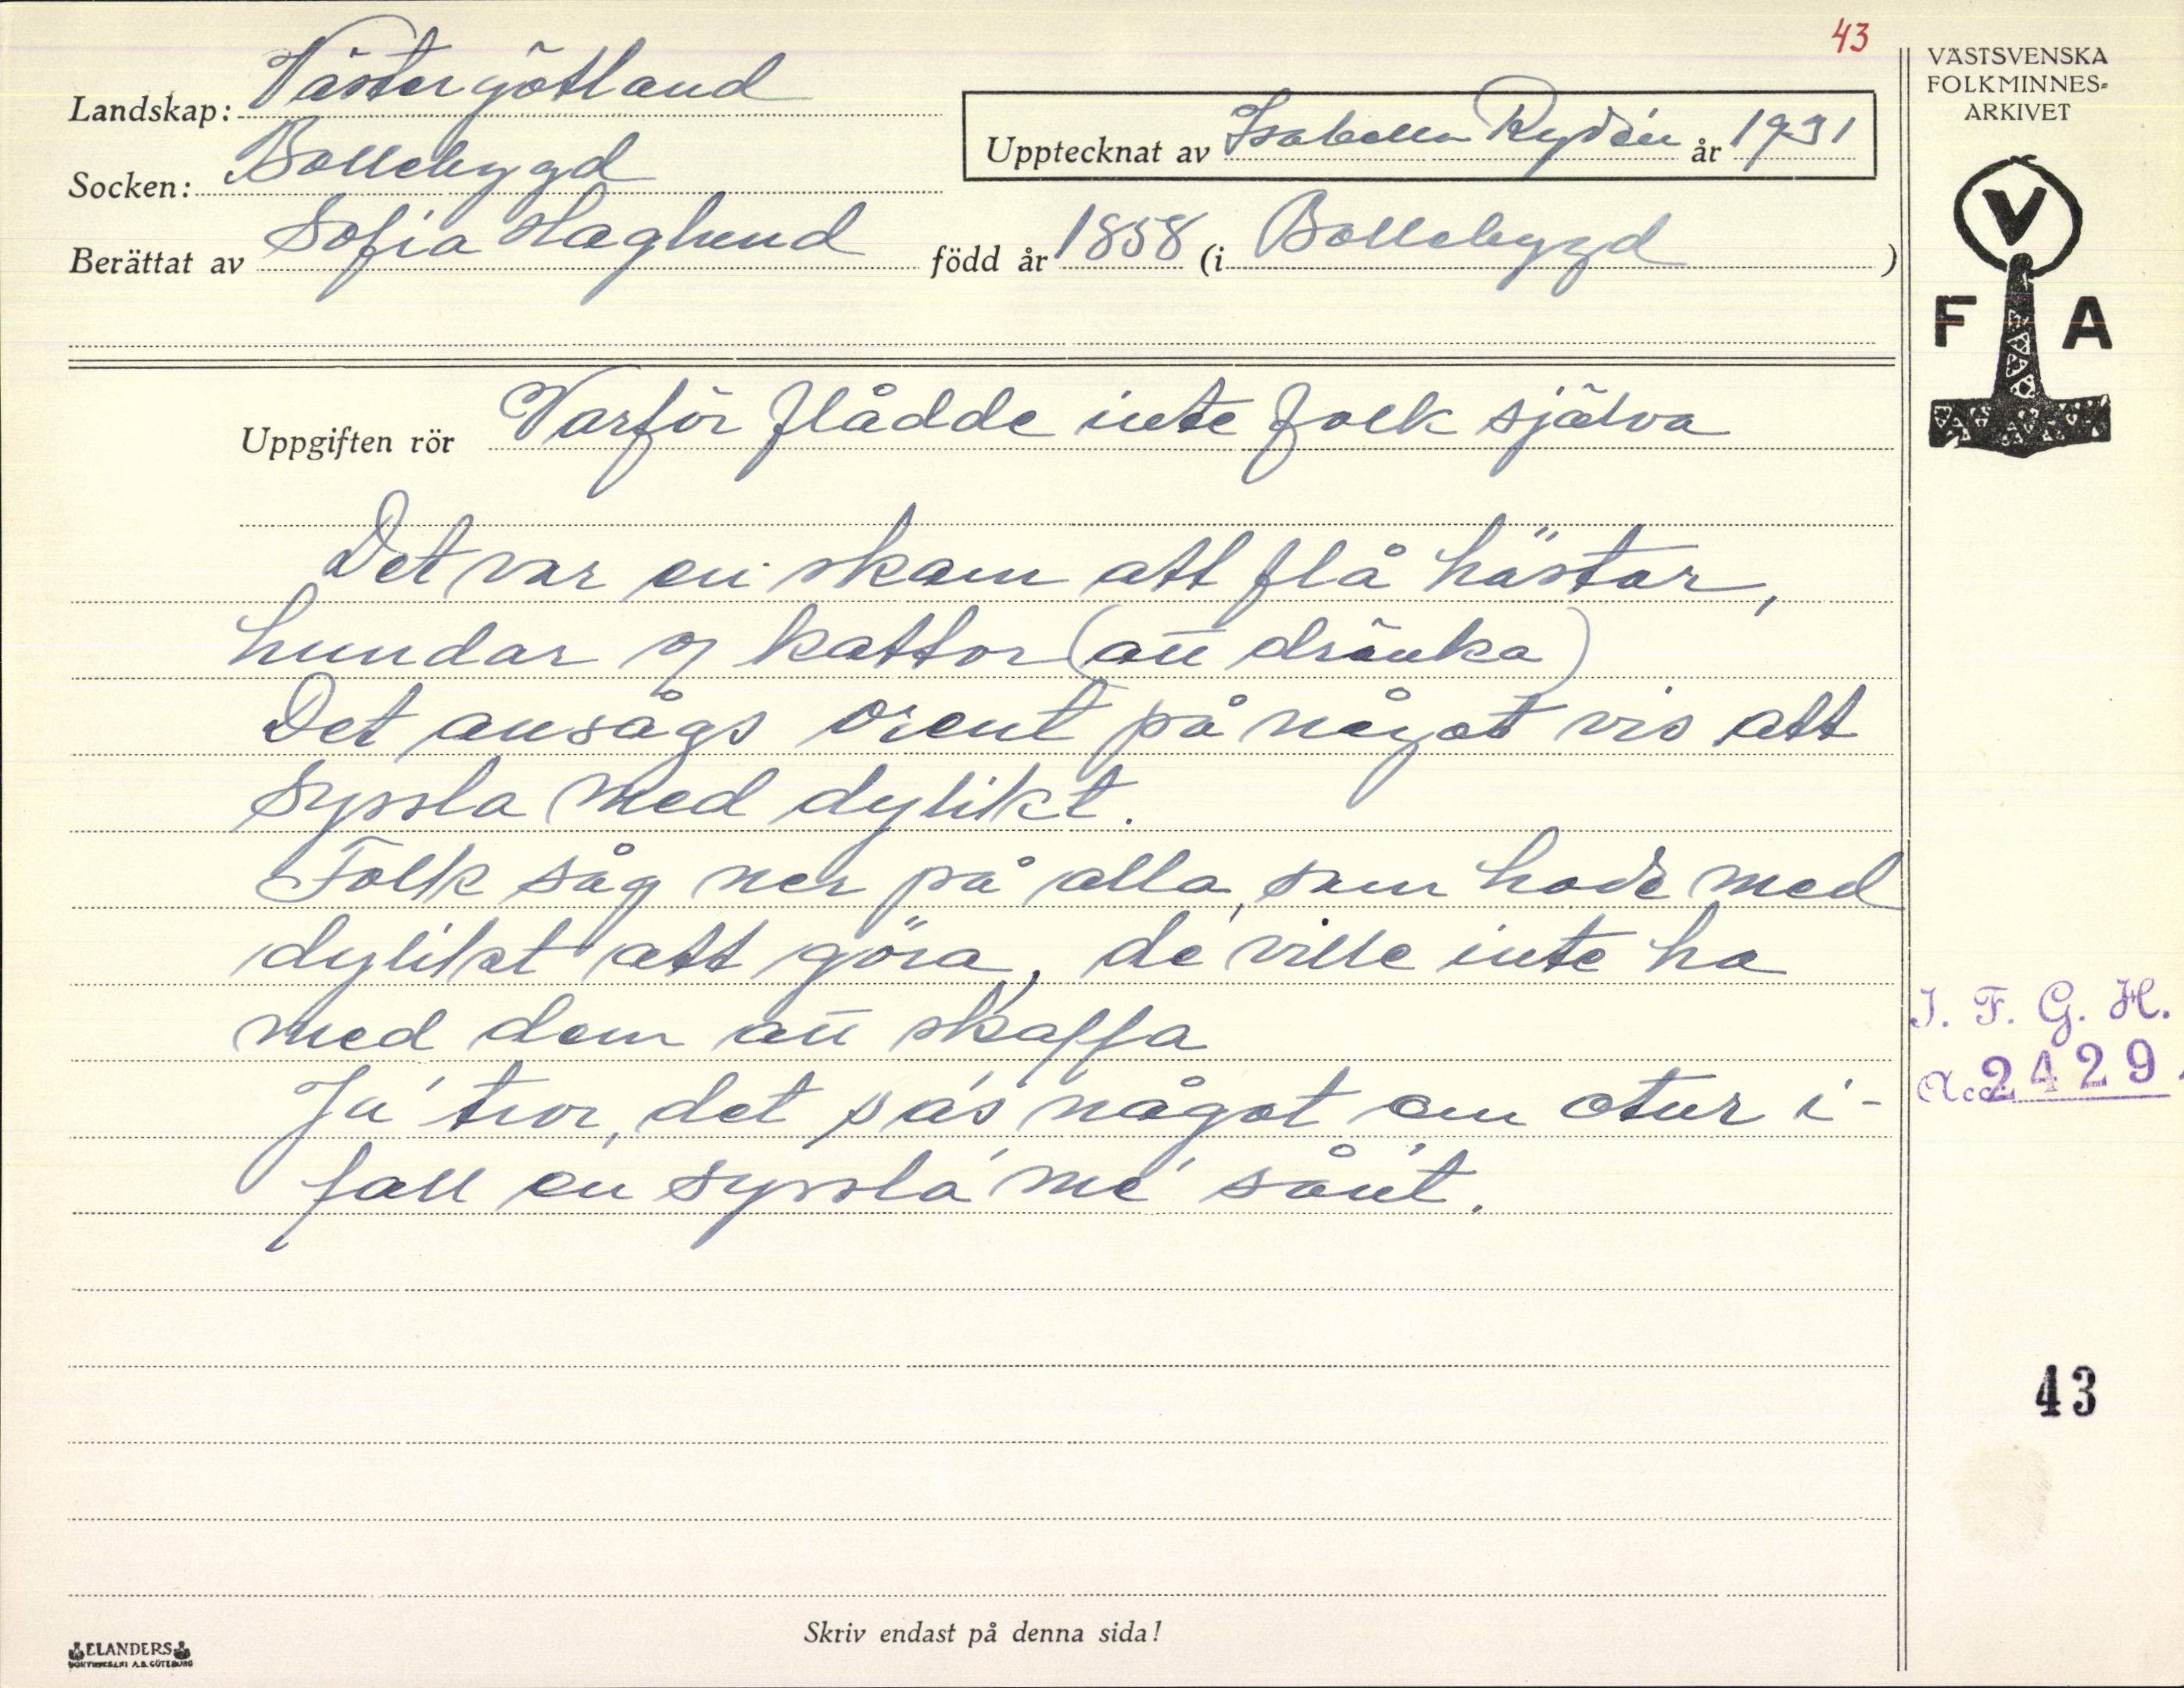 43
VÄSTSVENSKA
FOLKMINNES-
ARKIVET
Landskap: Västergötland
Upptecknat av Isabella Rydén år 1931
Socken: Bollebygd
Berättat av Sofia Haglund född år 1858 (i Bollebygd )
V
F A
Uppgiften rör Varför flådde inte folk själva
Det var en skam att flå hästar,
hundar o kattor (att dränka)
Det ansågs orent på något vis att
syssla med dylikt.
Folk såg ner på alla, som hade med
dylikt att göra, de ville inte ha
med dem att skaffa
Ja' tror, det sas något om otur i-
fall en syssla' me' sån't.
I. F. G. H.
Acc. 2429.
43
Skriv endast på denna sida!
ELANDERS
BOKTRYCKERI A.B. GÖTEBORG